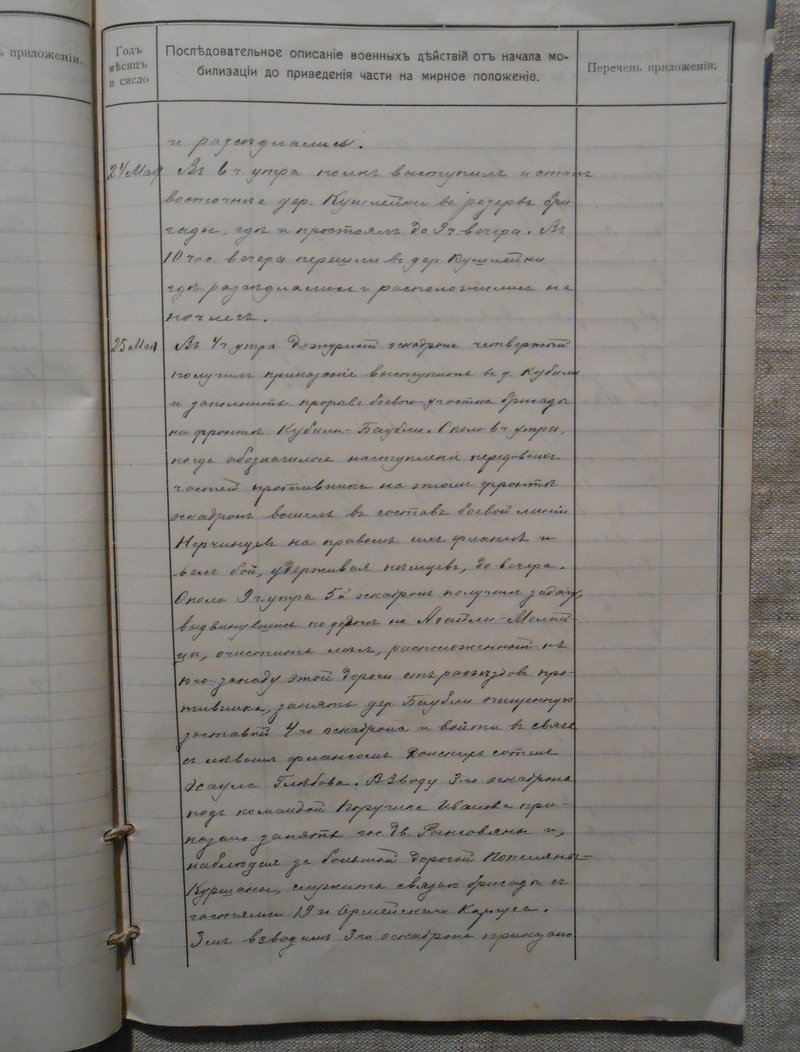 ь приложеній.
Годъ
мѣсяцъ
и сисло
Послѣдовательное описаніе военныхъ дѣйствій отъ начала мо-
билизаціи до приведенія части на мирное положеніе.
Перечень приложеній.
и разсѣдлались.
24 Мая Въ 6 ч. утра полкъ выступилъ и сталъ
восточнѣе дер. Кушлейки въ резервъ бри
гады, гдѣ и простоялъ до 9 ч вечера. Въ
10 час вечера перешли въ дер Кушлейки
гдѣ разсѣдлались и расположились на
ночлегъ.
25 Мая Въ 4 ч утра Дежурный эскадронъ четвертый
получилъ приказаніе выступить въ д. Кубили
и заполнить прорывъ боевого участка бригады
на фронтѣ Кубили-Баубли. Около 6 ч утра,
когда обозначилось наступленіе передовыхъ
частей противника на этомъ фронтѣ
эскадронъ вошелъ въ составъ боевой линіи
Нерчинцевъ на правомъ ихъ флангѣ и
велъ бой, удерживая нѣмцевъ, до вечера.
Около 9 ч утра 5й эскадронъ получилъ задачу,
выдвинувшись по дорогѣ на
очистить лѣсъ, расположенный къ
юго-западу этой дороги отъ разъѣздовъ про-
тивника, занять дер. Баубли очищенную
заставой 4-го эскадрона и войти въ связь
съ лѣвымъ флангомъ Донскихъ сотенъ
Эсаула Глѣбова. Взводу 3-го эскадрона
подъ командой Поручика Иванова при-
казано занять гос. Дв. и,
наблюдая за большой дорогой
Куршаны, служить связью бригады съ
частями 19го Армейскаго Корпуса.
3мъ взводамъ 3-го эскадрона приказано